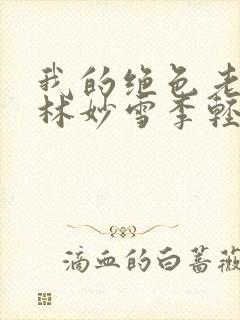 我的绝色老
林妙雪季轻
滴血的白蔷薇